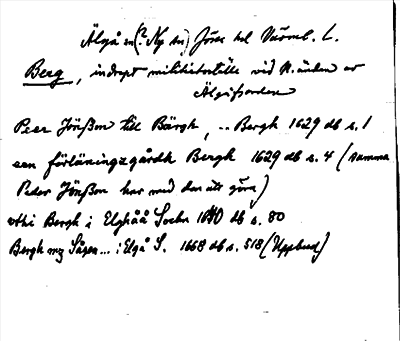 Älgå sn (? Ny sn) Jösse hd Värml. L.
Berg, indept militieställe vid N. änden av
Älgåfjorden
Peer Jönßon till Bärgh, .. Bergh 1629 db s. 1
een förläningzgårdh Bergh 1629 db s. 4 (samma
Peder Jönßon har med den att göra)
vthi Bergh i Elghåå Sochn 1640 db s. 80
Bergh og Sågen ... i Elgå S. 1668 db s. 518 (Uppbud)